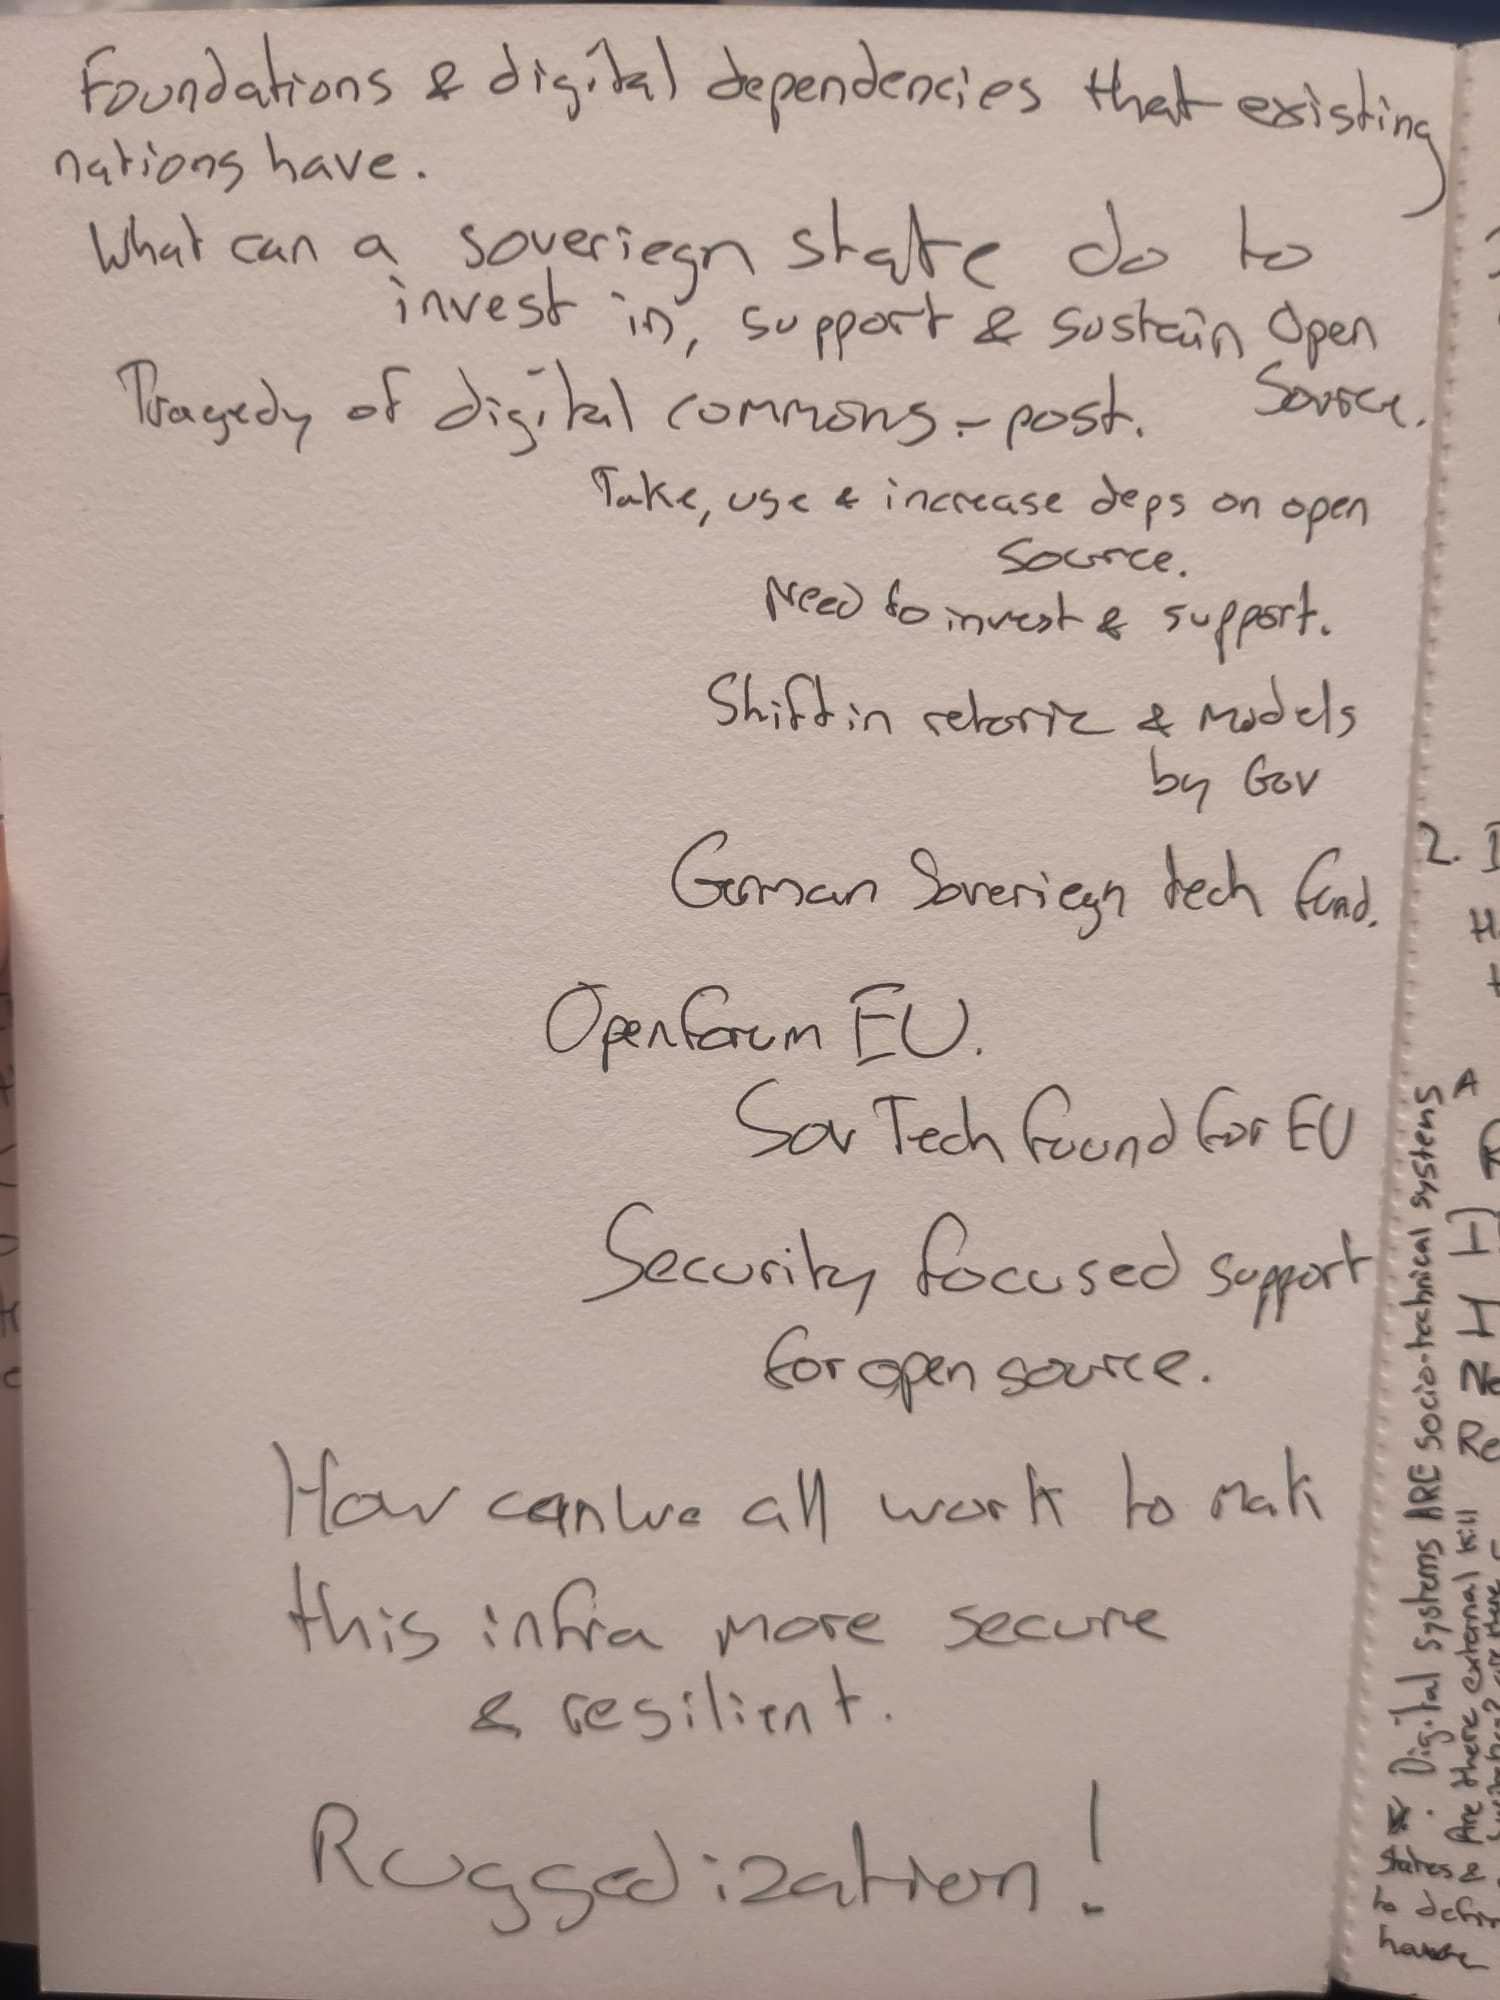 Foundations & digital dependencies that existing
nations have.
What can a soveriegn state do to
invest in, support & sustain Open
Source.
Tragedy of digital commons - post.
Take, use & increase deps on open
source.
Need to invest & support.
Shift in retoric & models
by Gov
German Soveriegn tech fund.
Openforum EU.
Sov Tech found for EU
Security focused support
for open source.
How can we all work to mak
this infra more secure
& resilient.
Ruggedization!
Digital systems ARE socio-technical systems
Are there external kill
states &
to defin
2.
A
Re